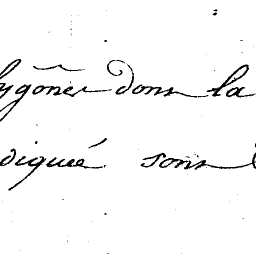 lygônes dans la
diqueé sous